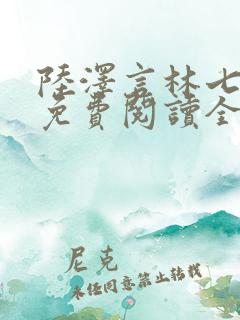 陸澤言林七
免費閱讀全
尼克
未經同意禁止轉載